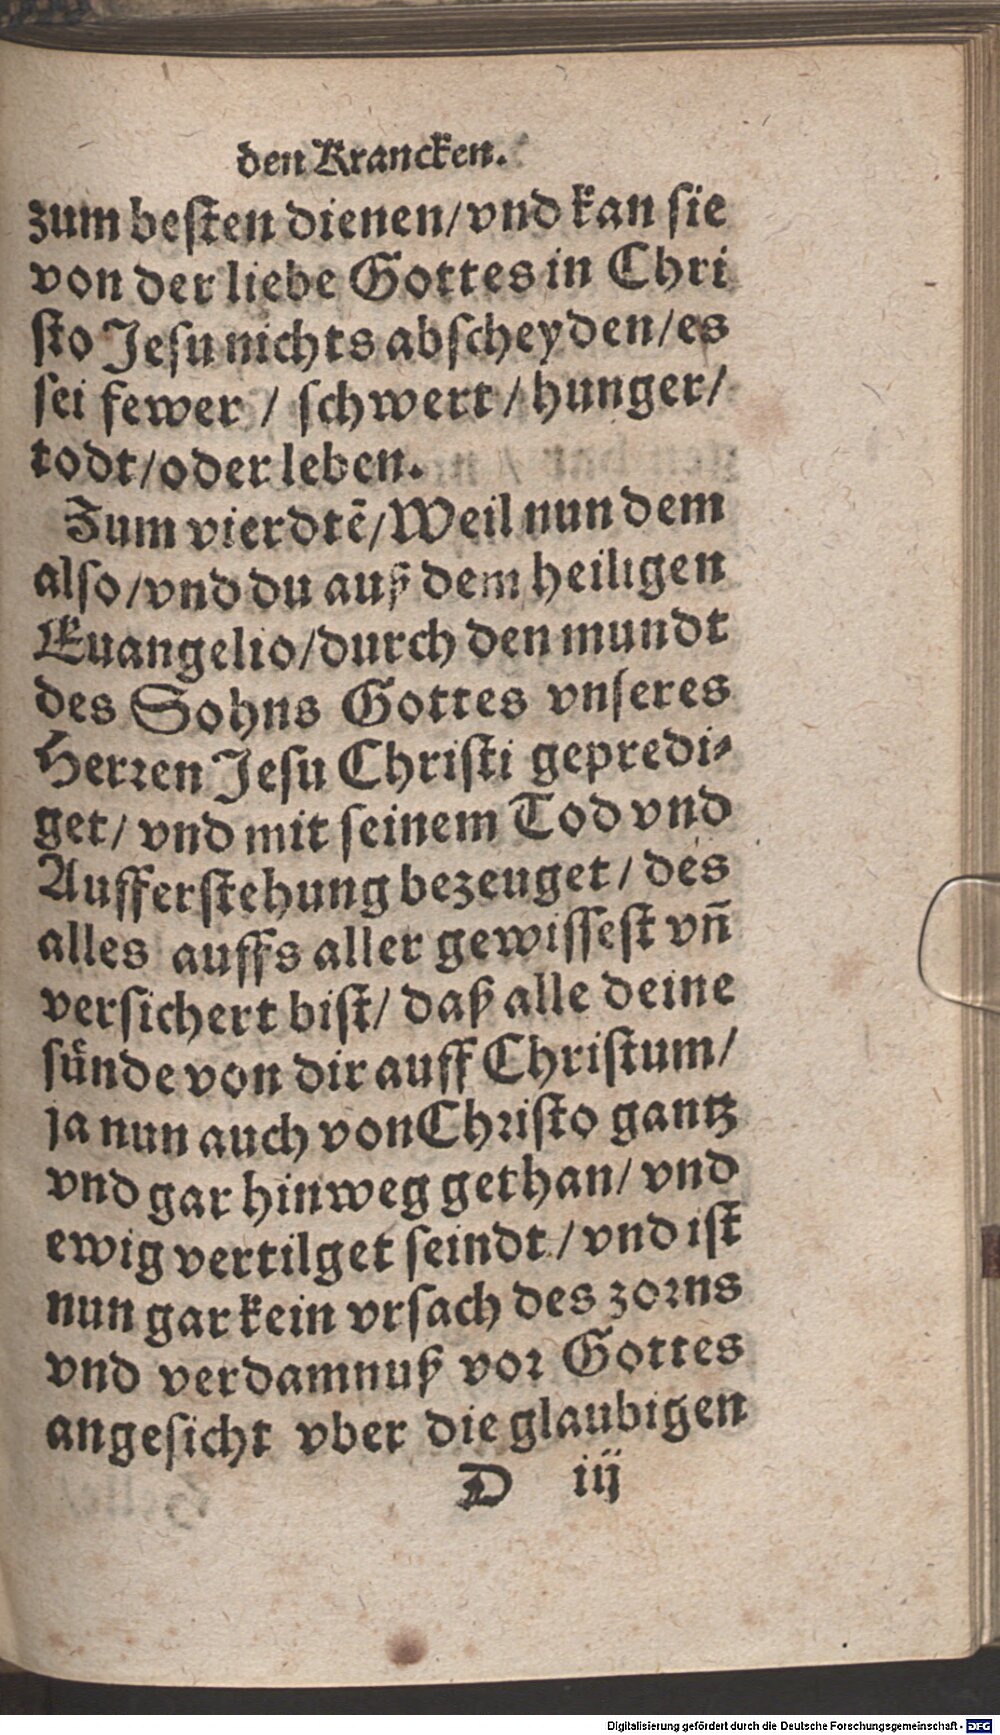 den Krancken.
zum beſten dienen/vnd kan ſie
von der liebe Gottes in Chri
ſto Jeſu nichts abſcheyden/es
ſei fewer / ſchwert / hunger/
todt/oder leben.
Zum vierdtẽ/Weil nun dem
alſo/vnd du auß dem heiligen
Euangelio/durch den mundt
des Sohns Gottes vnſeres
Herꝛen Jeſu Chriſti gepredi⸗
get/ vnd mit ſeinem Tod vnd
Aufferſtehung bezeuget/ des
alles auffs aller gewiſſeſt vñ
verſichert biſt/ daß alle deine
ſuͤnde von dir auff Chriſtum/
ja nun auch von Chꝛiſto gantz
vnd gar hinweg gethan/ vnd
ewig vertilget ſeindt/ vnd iſt
nun gar kein vrſach des zoꝛns
vnd verdamnuß voꝛ Gottes
angeſicht vber die glaubigen
D iij
Digitalisierung gefördert durch die Deutsche Forschungsgemeinschaft - DFG